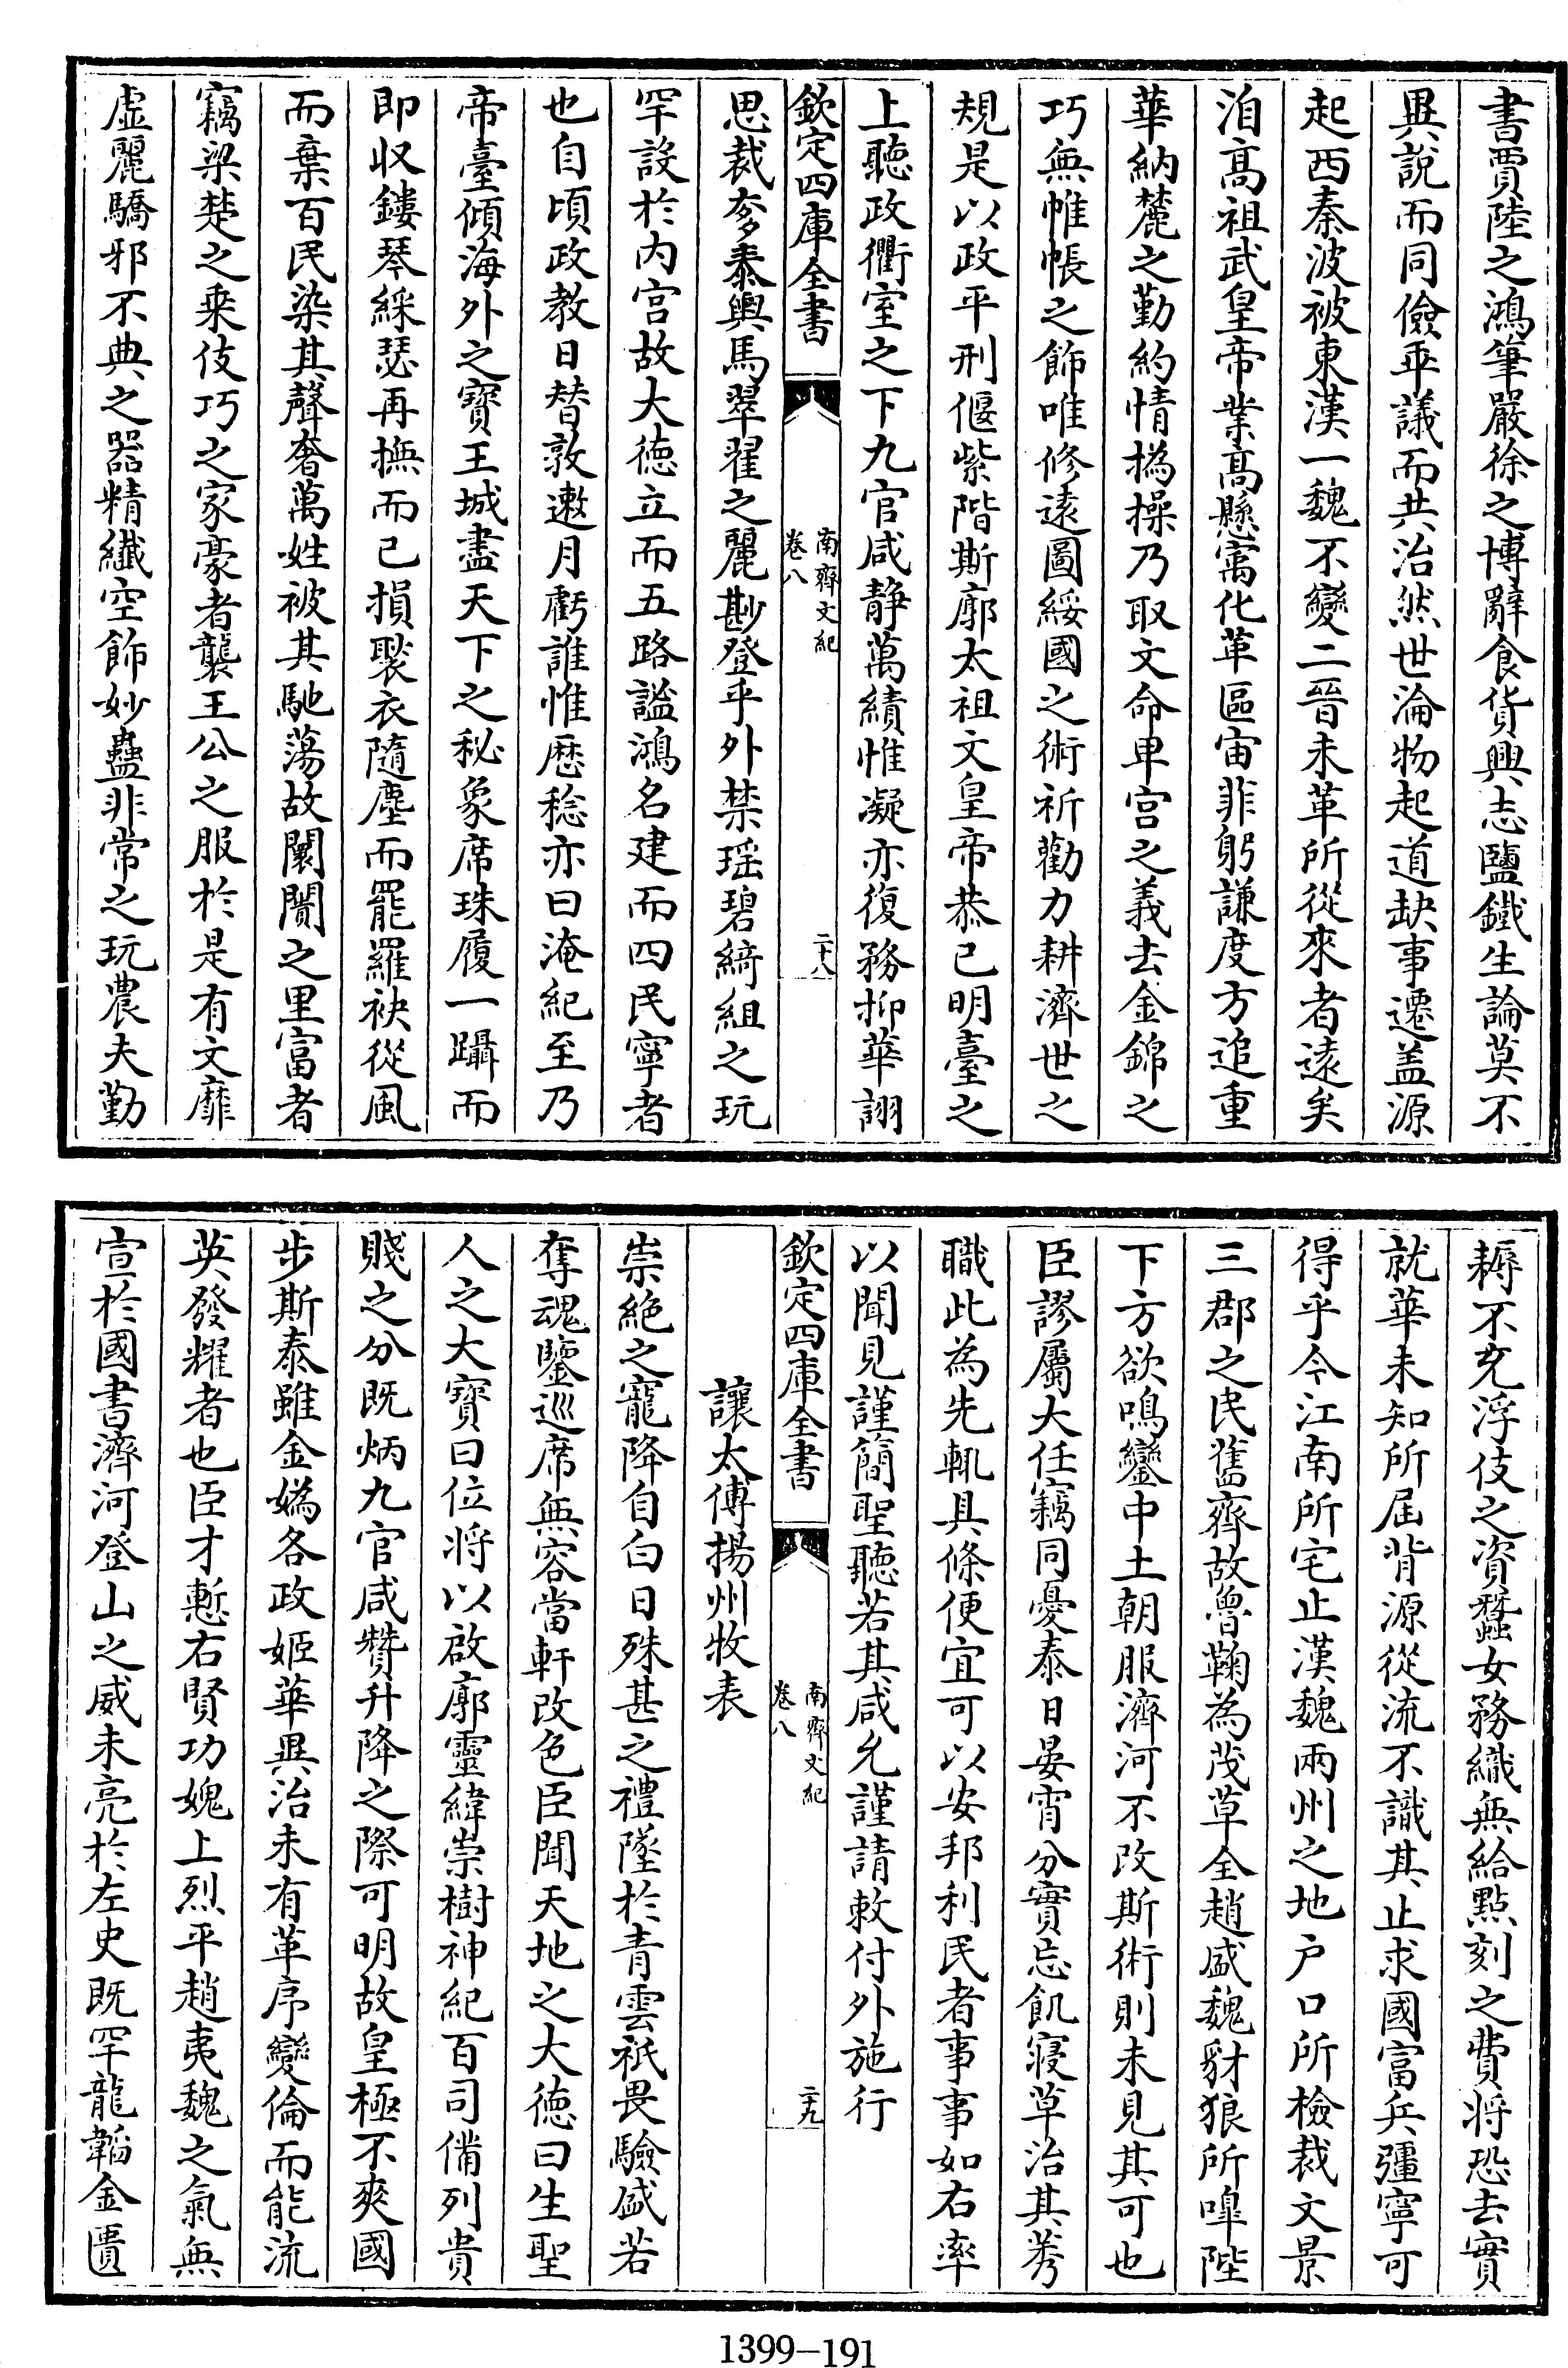 書賈陸之鴻筆嚴徐之博辭食貨興志鹽鐵生論莫不
異說而同儉乖議而共治然世淪物起道缺事遷盖源
起西秦波被東漢一魏不變二晉未革所從來者遠矣
洎髙祖武皇帝業髙懸㝢化革區宙非躬謙度方追重
華納麓之勤約情撝操乃取文命卑宫之義去金錦之
巧無帷帳之飾唯修遠圖綏國之術祈勸力耕濟世之
規是以政平刑偃紫階斯廓太祖文皇帝恭已明臺之
上聽政衢室之下九官咸静萬績惟凝亦復務抑華詡
欽定四庫全書
南齊文紀
卷八
二十八
思裁奓泰輿馬翠翟之麗尠登乎外禁瑶碧綺組之玩
罕設於内宫故大徳立而五路謐鴻名建而四民寧者
也自頃政教日替敦遬月虧誰惟歴稔亦曰淹紀至乃
帝臺傾海外之寳王城盡天下之秘象席珠履一躡而
即收鏤琴綵瑟再撫而已損褧衣隨塵而罷羅袂從風
而棄百民染其聲奢萬姓被其馳蕩故闤闠之里富者
竊梁楚之乗伎巧之家豪者襲王公之服於是有文靡
虚麗驕邪不典之器精纎空飾妙蠱非常之玩農夫勤
耨不充浮伎之資蠶女務織無給點刻之費将恐去實
就華未知所屆背源從流不識其止求國富兵彊寧可
得乎今江南所宅止漢魏兩州之地户口所檢裁文景
三郡之民舊齊故魯鞠為茂草全趙盛魏豺狼所嘷陛
下方欲鳴鑾中土朝服濟河不改斯術則未見其可也
臣謬屬大任竊同憂泰日晏宵分實忘飢寢草治其莠
職此為先輒具條便宜可以安邦利民者事事如右率
以聞見謹簡聖聽若其咸允謹請敕付外施行
欽定四庫全書
南齊文紀
卷八
二十九
讓太傅揚州牧表
崇絶之寵降自白日殊甚之禮墜於青雲祗畏驗盛若
奪魂鑒巡席無容當軒改色臣聞天地之大徳曰生聖
人之大寳曰位将以啟廓靈緯崇樹神紀百司備列貴
賤之分既炳九官咸贊升降之際可明故皇極不爽國
步斯泰雖金嬀各政姬華異治未有革序變倫而能流
英發耀者也臣才慙右賢功媿上烈平趙夷魏之氣無
宣於國書濟河登山之威未亮於左史既罕龍韜金匱
1399-191